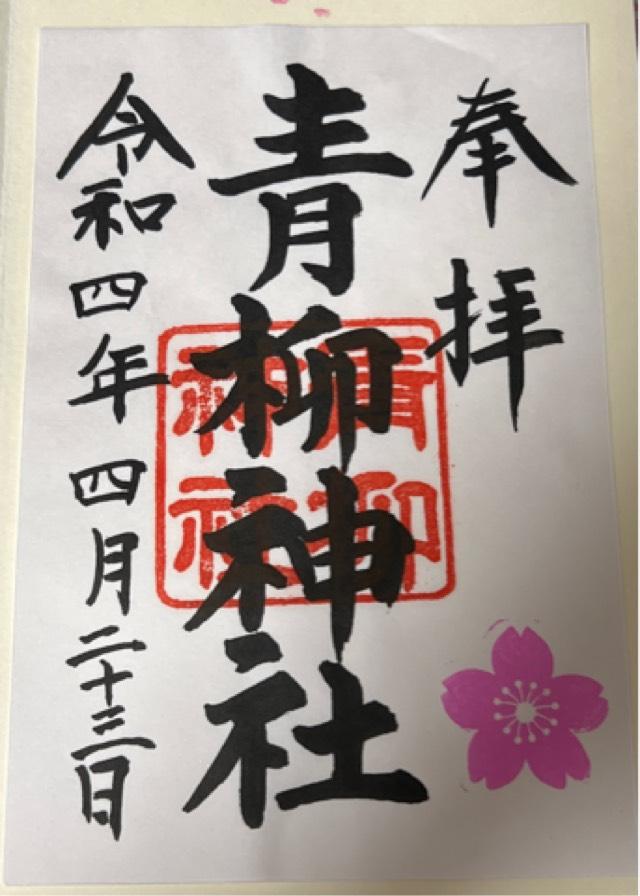 奉拝
青柳神社
青柳
神社
令和四年四月二十三日